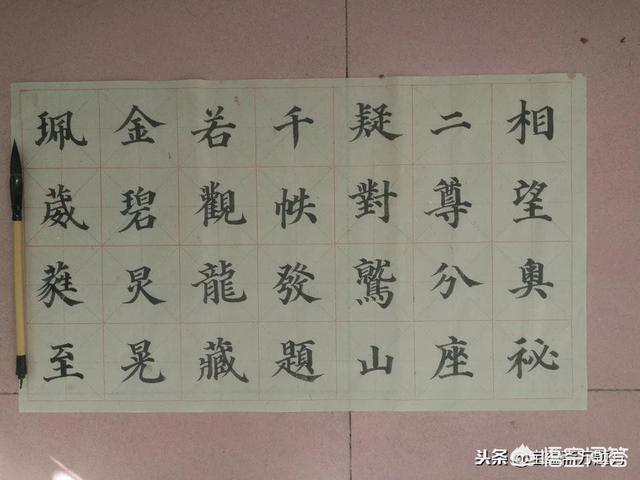 相望奥祕
二尊分座
疑對鷲山
千帙發題
若觀龍藏
金碧炅晃
珮葳蕤至